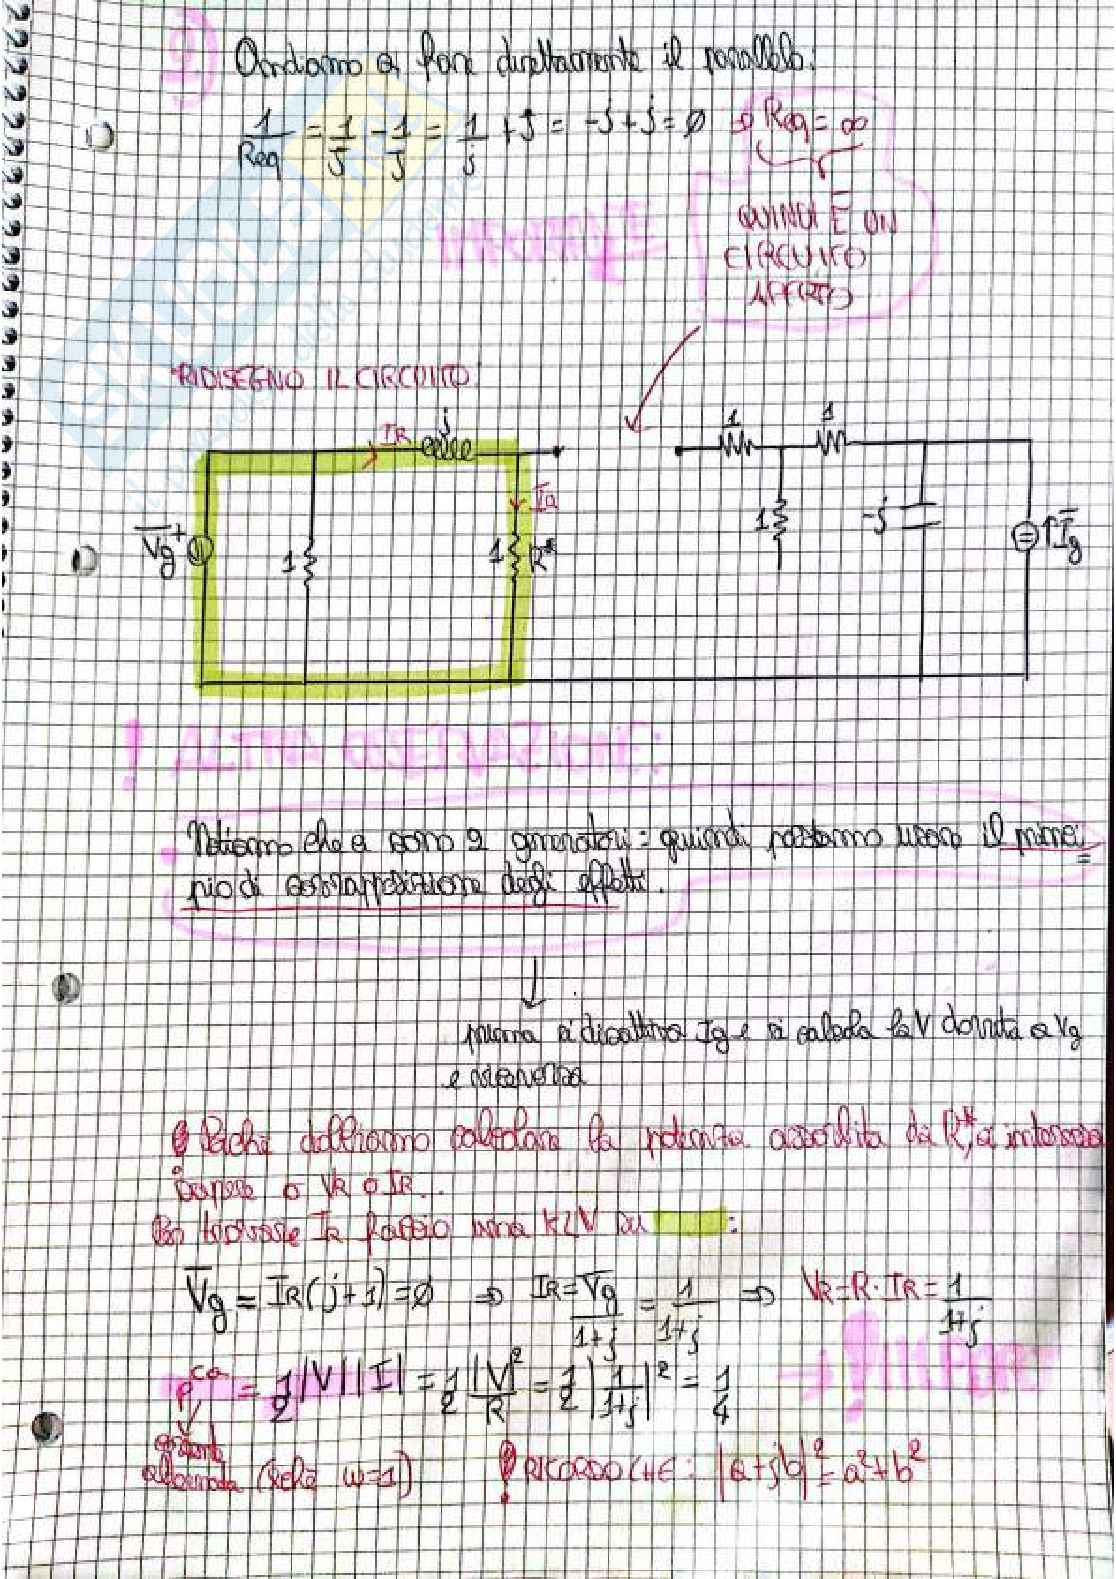 2)
Andiamo a fare direttamente il parallelo:
1/Req = 1/j - 1/j = 1/j + j = -j + j = ∅ ⇒ Req = ∞
IMPORTANTE
QUINDI È UN
CIRCUITO
APERTO
RIDISEGNO IL CIRCUITO:
IR j 1 1
Ia
V̄g + 1 1 R* 1 -j ↑Īg
! ALTRA OSSERVAZIONE:
Notiamo che ci sono 2 generatori: quindi possiamo usare il princi=
pio di sovrapposizione degli effetti.
prima si disattiva Ig e si calcola la V dovuta a Vg
e viceversa
Poiché dobbiamo calcolare la potenza assorbita da R*, ci interessa
sapere o VR o IR..
Per trovare IR faccio una KLV su :
V̄g = IR(j+1) = ∅ ⇒ IR = V̄g/1+j = 1/1+j ⇒ VR = R · IR = 1/1+j
P^ca = 1/2 |V||I| = 1/2 |V|²/R = 1/2 |1/1+j|² = 1/4
→ ! IMPOR
corrente
alternata (perché w=1) ! RICORDO CHE: |a+jb|² = a²+b²